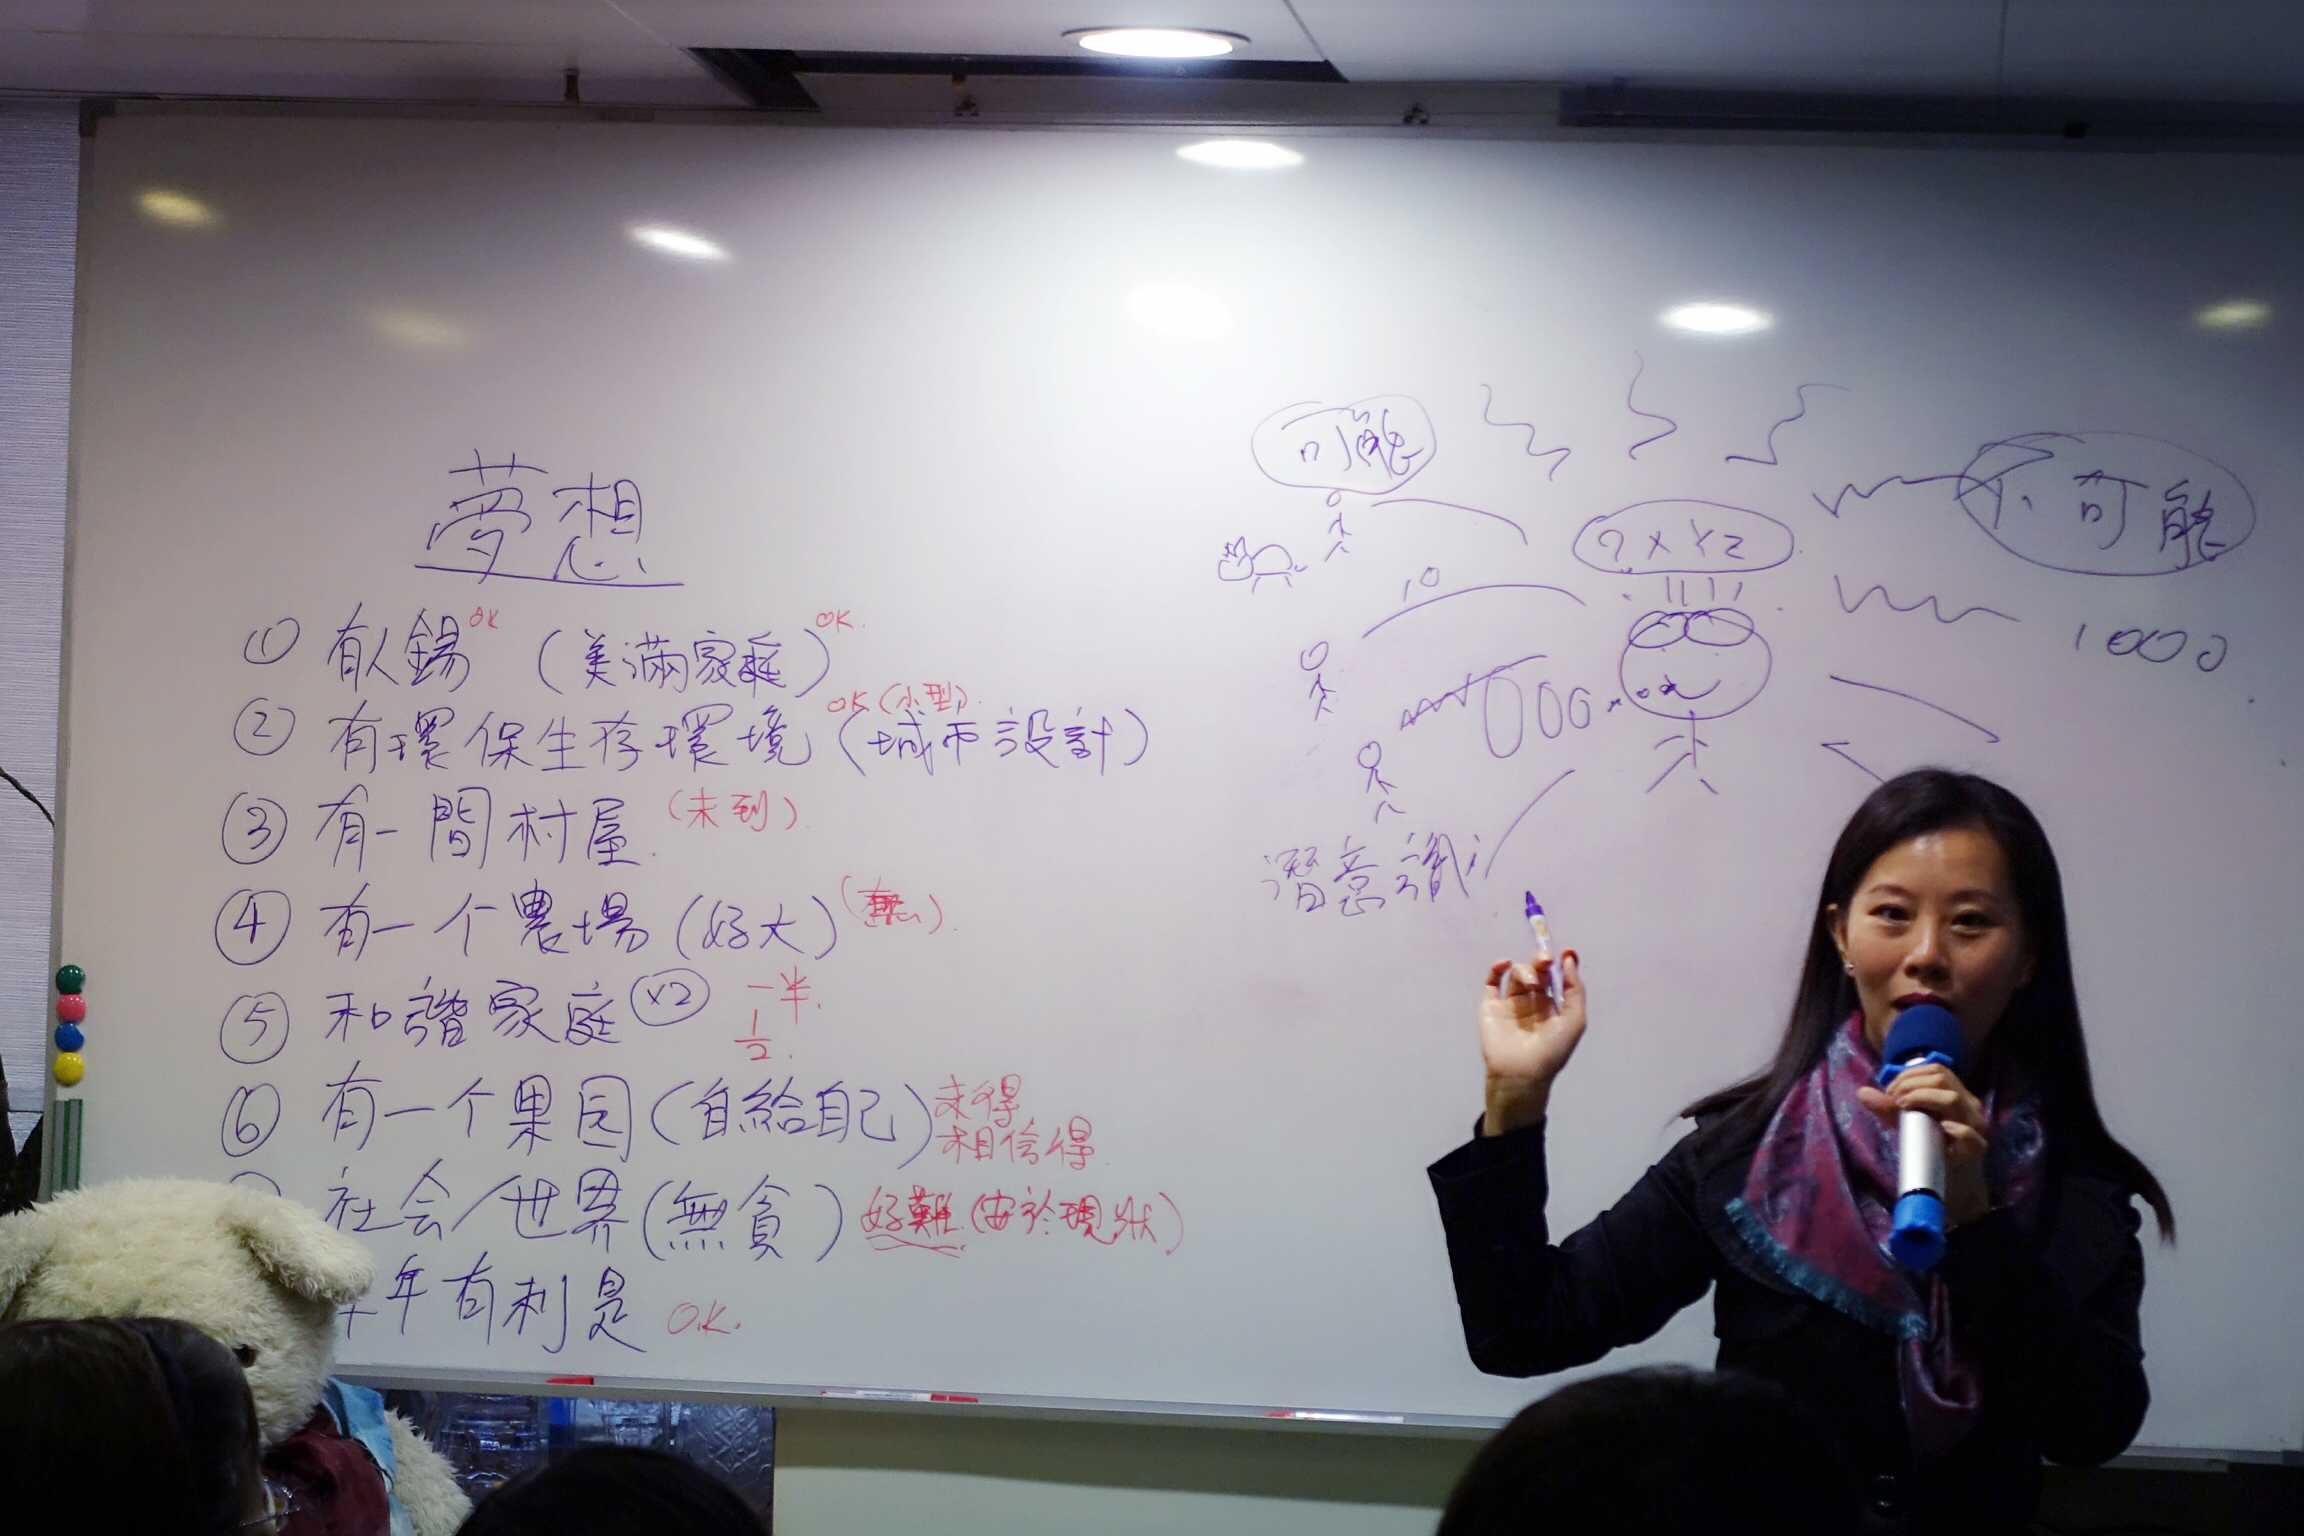 夢想
① 有人錫 OK (美滿家庭) OK.
② 有環保生存環境 OK (小型). (城市設計)
③ 有一間村屋. (未到).
④ 有一个農場 (好大)
⑤ 和諧家庭 X2 一半. 1/2.
⑥ 有一个果园 (自給自己) 求得 相信得
社会/世界 (無貪) 好難. (安於現狀)
年年有利是 O.K.
可能
不可能
? X Y Z
10
1000
潛意識